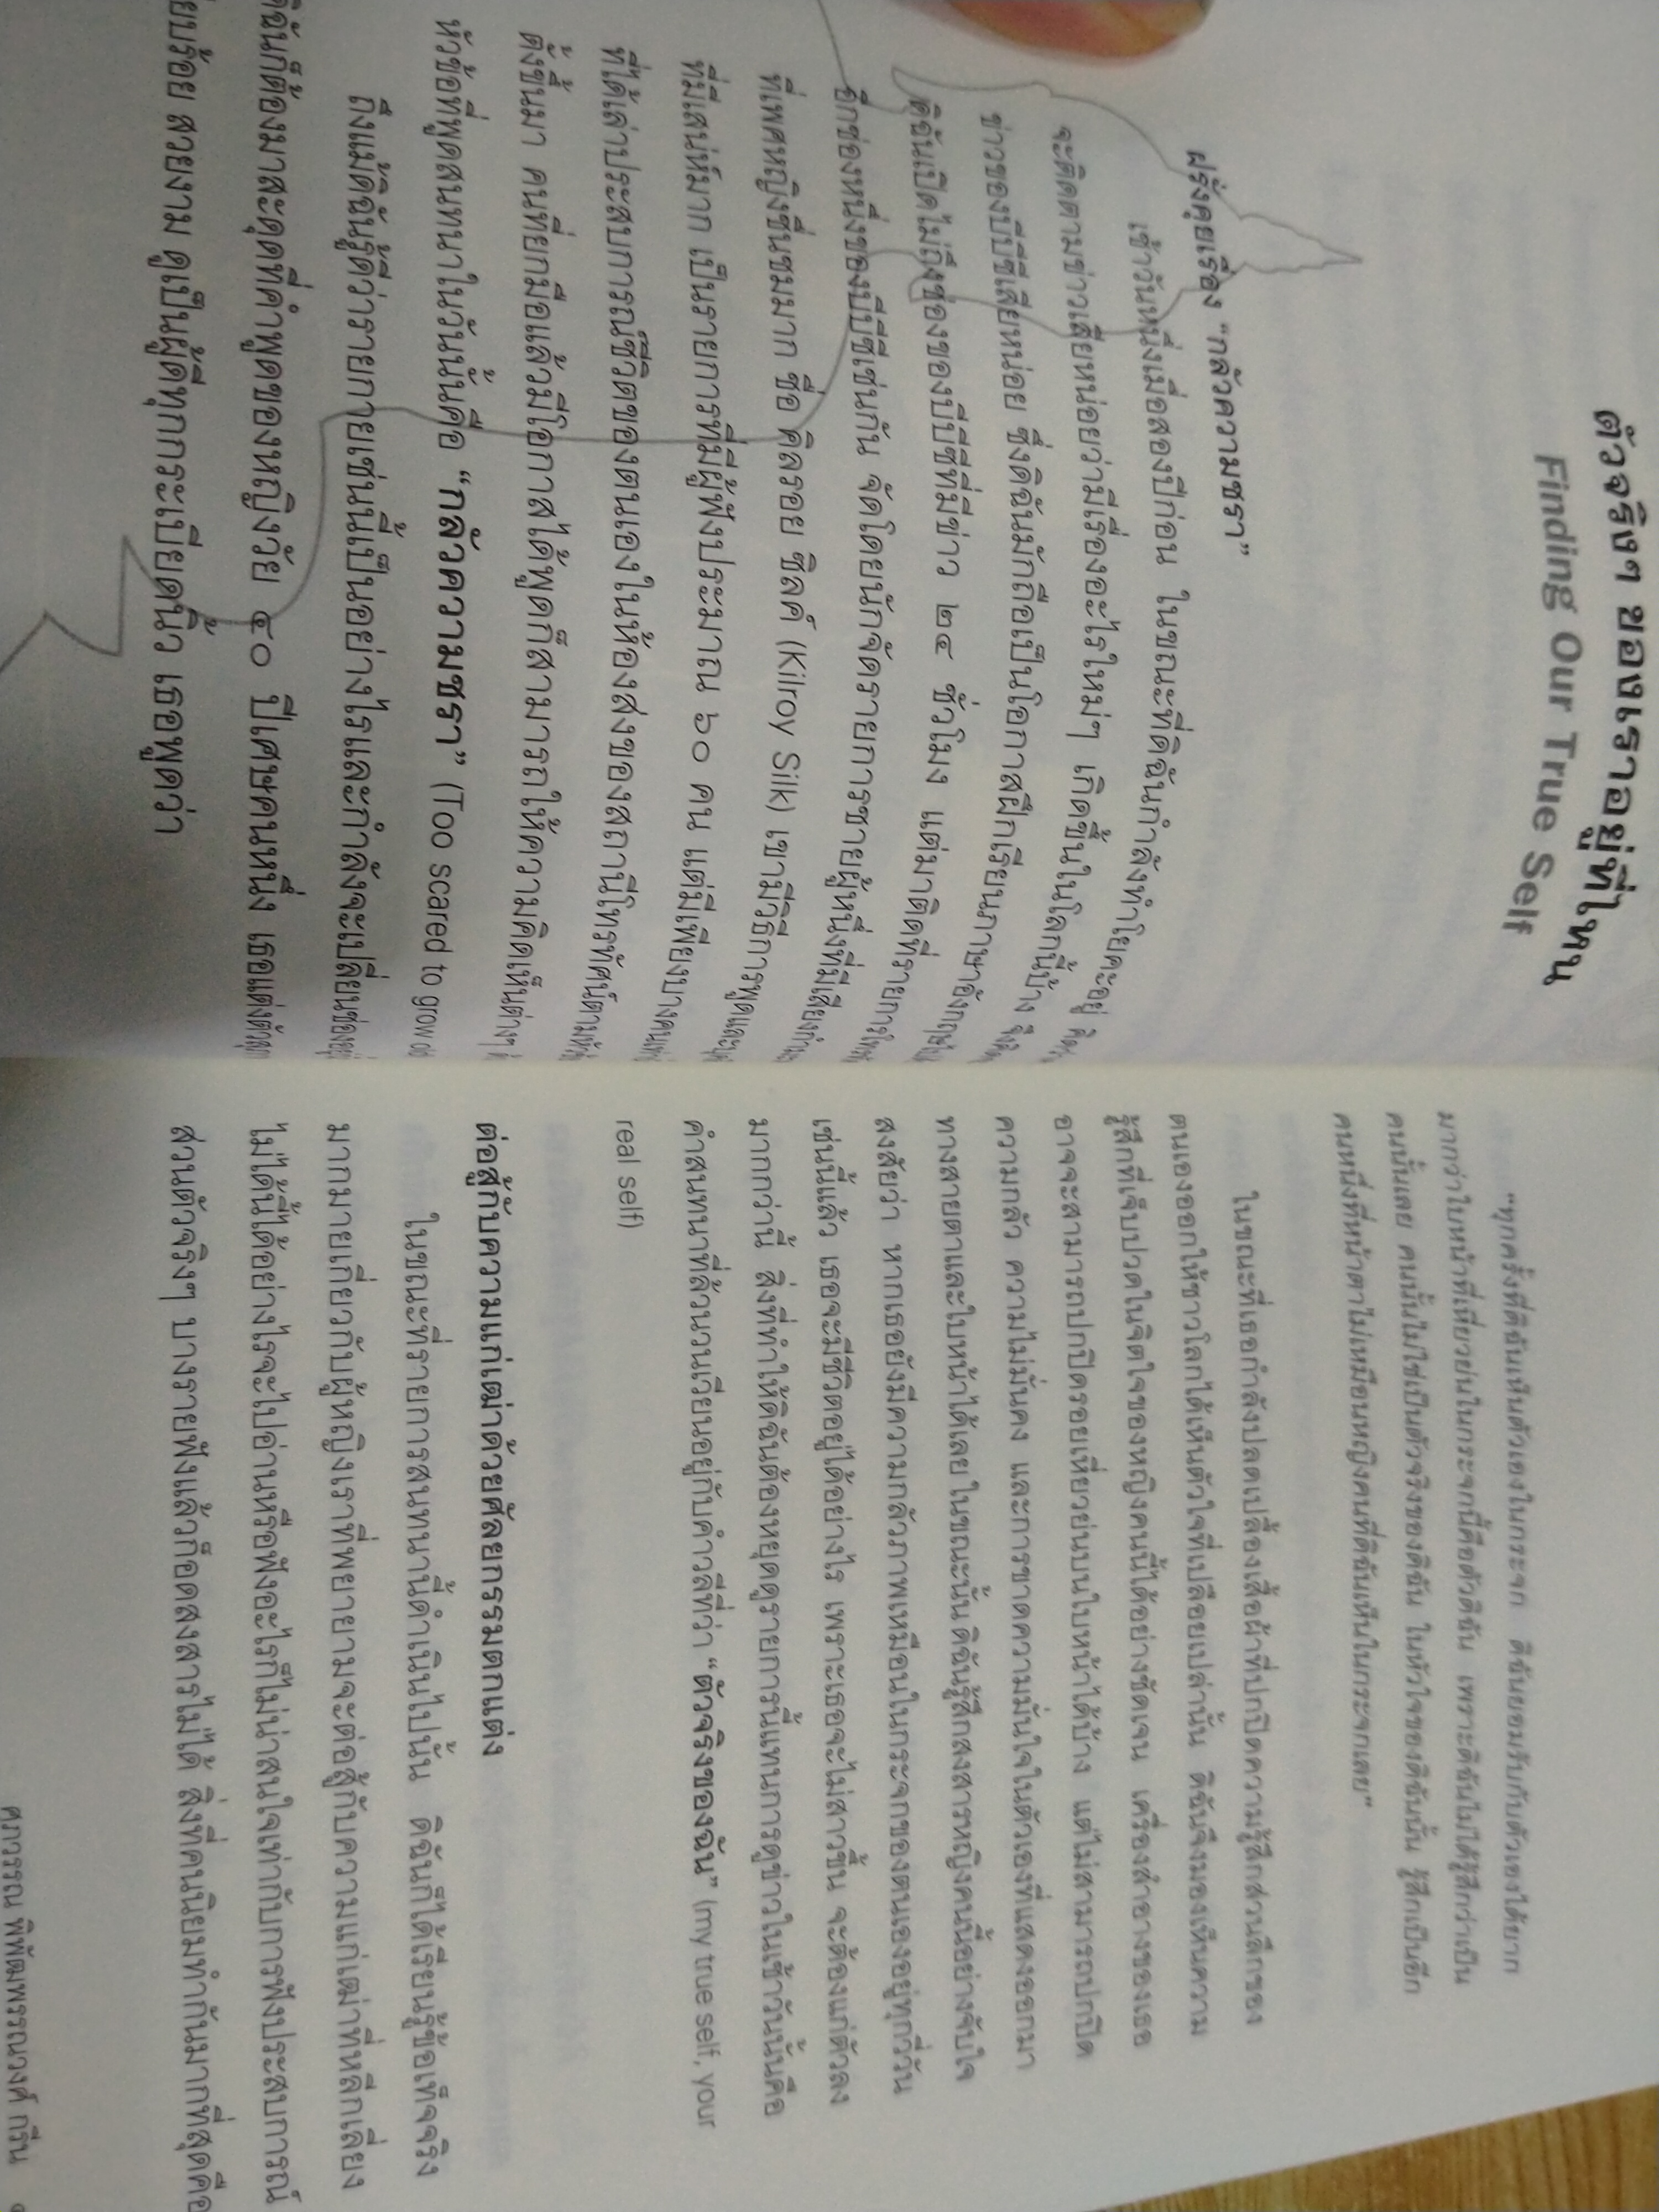 ตัวจริงๆ ของเราอยู่ที่ไหน
Finding Our True Self
ฝรั่งคุยเรื่อง “กลัวความชรา”
เช้าวันหนึ่งเมื่อสองปีก่อน ในขณะที่ดิฉันกำลังทำโยคะอยู่
จะติดตามข่าวเสียหน่อยว่ามีเรื่องอะไรใหม่ๆ เกิดขึ้นในโลกนี้บ้าง
ข่าวของบีบีซีเสียหน่อย ซึ่งดิฉันมักถือเป็นโอกาสฝึกเรียนภาษาอังกฤษ
ดิฉันเปิดไม่ถึงช่องของบีบีซีที่มีข่าว ๒๔ ชั่วโมง แต่มาติดที่รายการ
อีกช่องหนึ่งของบีบีซีเช่นกัน จัดโดยนักจัดรายการชายผู้หนึ่งที่มีเสียง
ที่เพศหญิงชื่นชมมาก ชื่อ คิลรอย ซิลค์ (Kilroy Silk) เขามีวิธีการพูดและ
ที่มีเสน่ห์มาก เป็นรายการที่มีผู้ฟังประมาณ ๖๐ คน แต่มีเพียงบางคน
ที่ได้เล่าประสบการณ์ชีวิตของตนเองในห้องส่งของสถานีโทรทัศน์ตาม
ตั้งขึ้นมา คนที่ยกมือแล้วมีโอกาสได้พูดก็สามารถให้ความคิดเห็นต่างๆ
หัวข้อที่พูดสนทนาในวันนั้นคือ “กลัวความชรา” (Too scared to grow
ถึงแม้ดิฉันรู้ดีว่ารายการเช่นนี้เป็นอย่างไรและกำลังจะเปลี่ยนช่อง
ดิฉันก็ต้องมาสะดุดที่คำพูดของหญิงวัย ๔๐ ปีเศษคนหนึ่ง เธอแต่งตัว
เรียบร้อย สวยงาม ดูเป็นผู้ดีทุกกระเบียดนิ้ว เธอพูดว่า
“ทุกครั้งที่ดิฉันเห็นตัวเองในกระจก ดิฉันยอมรับกับตัวเองได้ยาก
มากว่าใบหน้าที่เหี่ยวย่นในกระจกนี้คือตัวดิฉัน เพราะดิฉันไม่ได้รู้สึกว่าเป็น
คนนั้นเลย คนนั้นไม่ใช่เป็นตัวจริงของดิฉัน ในหัวใจของดิฉันนั้น รู้สึกเป็นอีก
คนหนึ่งที่หน้าตาไม่เหมือนหญิงคนที่ดิฉันเห็นในกระจกเลย”
ในขณะที่เธอกำลังปลดเปลื้องเสื้อผ้าที่ปกปิดความรู้สึกส่วนลึกของ
ตนเองออกให้ชาวโลกได้เห็นตัวใจที่เปลือยเปล่านั้น ดิฉันจึงมองเห็นความ
รู้สึกที่เจ็บปวดในจิตใจของหญิงคนนี้ได้อย่างชัดเจน เครื่องสำอางของเธอ
อาจจะสามารถปกปิดรอยเหี่ยวย่นบนใบหน้าได้บ้าง แต่ไม่สามารถปกปิด
ความกลัว ความไม่มั่นคง และการขาดความมั่นใจในตัวเองที่แสดงออกมา
ทางสายตาและใบหน้าได้เลย ในขณะนั้น ดิฉันรู้สึกสงสารหญิงคนนี้อย่างจับใจ
สงสัยว่า หากเธอยังมีความกลัวภาพเหมือนในกระจกของตนเองอยู่ทุกวี่วัน
เช่นนี้แล้ว เธอจะมีชีวิตอยู่ได้อย่างไร เพราะเธอจะไม่สาวขึ้น จะต้องแก่ตัวลง
มากกว่านี้ สิ่งที่ทำให้ดิฉันต้องหยุดดูรายการนี้แทนการดูข่าวในเช้าวันนั้นคือ
คำสนทนาที่ล้วนวนเวียนอยู่กับคำวลีที่ว่า “ตัวจริงของฉัน” (my true self, your
real self)
ต่อสู้กับความแก่เฒ่าด้วยศัลยกรรมตกแต่ง
ในขณะที่รายการสนทนานี้ดำเนินไปนั้น ดิฉันก็ได้เรียนรู้ข้อเท็จจริง
มากมายเกี่ยวกับผู้หญิงเราที่พยายามจะต่อสู้กับความแก่เฒ่าที่หลีกเลี่ยง
ไม่ได้นี้ได้อย่างไรจะไปอ่านหรือฟังอะไรก็ไม่น่าสนใจเท่ากับการฟังประสบการณ์
ส่วนตัวจริงๆ บางรายฟังแล้วก็อดสงสารไม่ได้ สิ่งที่คนนิยมทำกันมากที่สุดคือ
ศุภวรรณ พิพัฒพรรณวงศ์ กรีน